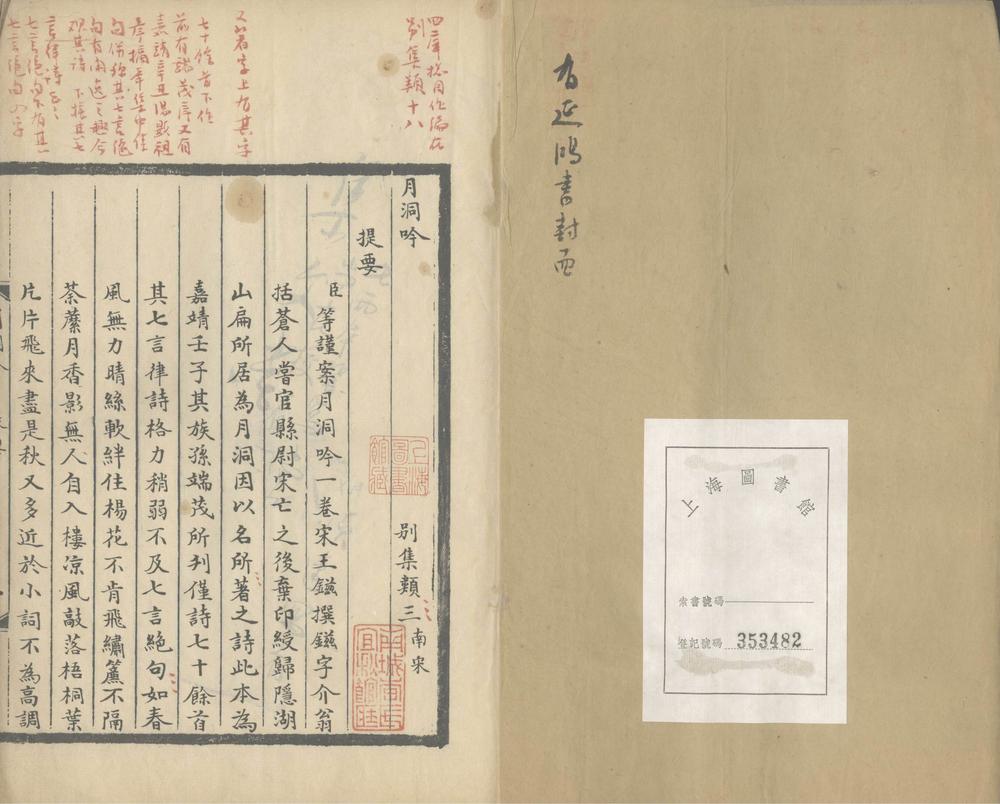 为延鴻書封面
上海圖書館
索書號碼
登記號碼 353482
四庫總目作編在
別集類十八
又以名字上有其字
七十餘首下作
前有端茂序又有
嘉靖辛丑湯顯祖
序摘本集中佳
句併稱其七言絕
句有閒遠之趣今
觀其詩下接其七
言律詩云云
七言絕句下有其一
七言絕句四字
月洞吟 別集類三南宋
提要
臣等謹案月洞吟一卷宋王鎡撰鎡字介翁
括蒼人嘗官縣尉宋亡之後棄印綬歸隱湖
山扁所居為月洞因以名所著之詩此本為
嘉靖壬子其族孫端茂所刋僅詩七十餘首
其七言律詩格力稍弱不及七言絕句如春
風無力晴絲軟絆住楊花不肯飛繡簾不隔
荼蘼月香影無人自入樓凉風敲落梧桐葉
片片飛來盡是秋又多近於小詞不為高調
上海圖書館藏